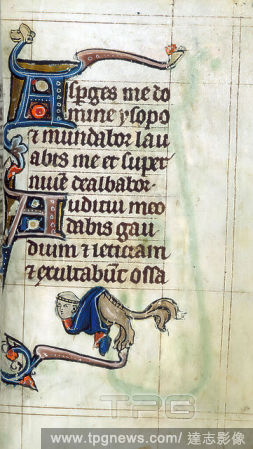 Asp̲ges me do
mine ysopo
⁊ mundabor lau
abis me et super
niuē dealbabor.
Auditui meo
dabis gau
dium ⁊ leticiam
⁊ exultabūt ossa
TPG
www.tpgnews.com/ 達志影像